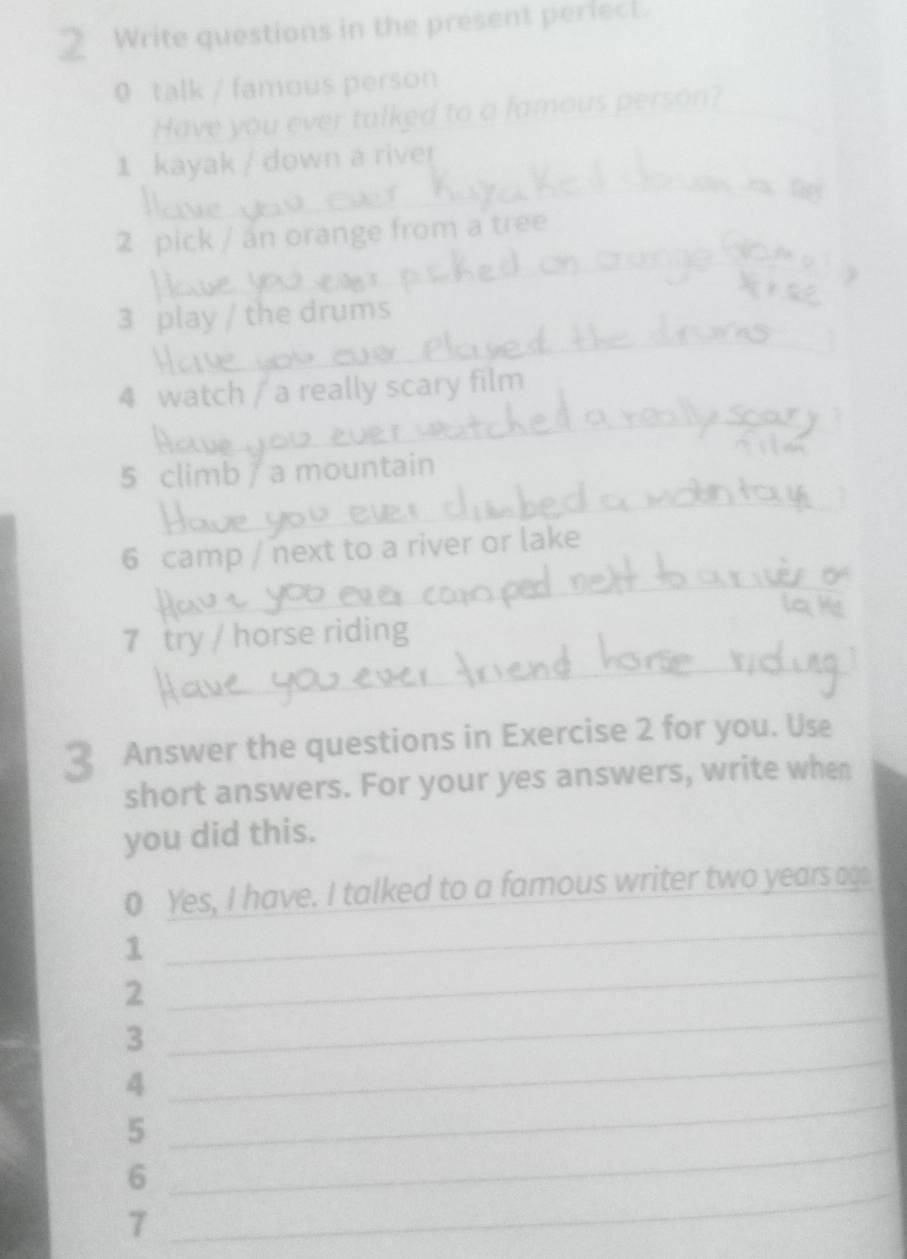 2 Write questions in the present perfect.
0 talk / famous person
Have you ever talked to a famous person?
1 kayak / down a river
Have you ever kayaked down a
2 pick / an orange from a tree
Have you ever picked an orange from a
tree
3 play / the drums
Have you ever played the drums
4 watch / a really scary film
Have you ever watched a really scary
film
5 climb / a mountain
Have you ever climbed a
6 camp / next to a river or lake
Have you ever camped next to a river or
lake
7 try / horse riding
Have you ever friend horse riding
3 Answer the questions in Exercise 2 for you. Use
short answers. For your yes answers, write when
you did this.
0 Yes, I have. I talked to a famous writer two years ago.
1
2
3
4
5
6
7